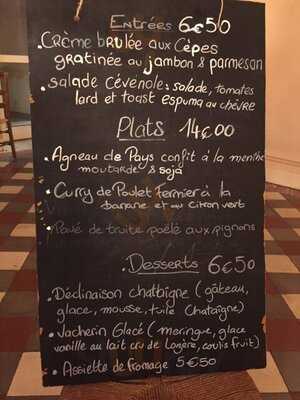 Entrées 6€50
. Crème brulée aux Cèpes
gratinée au jambon & parmesan
. salade Cévenole: salade, tomates
lard et toast espuma au chèvre
Plats 14€00
. Agneau de Pays confit à la menthe
moutarde & soja
. Curry de Poulet Fermier à la
banane et au citron vert
. Pavé de truite poêlé aux pignons
. Desserts 6€50
. Déclinaison chataigne (gâteau,
glace, mousse, tuile Chataigne)
. Vacherin Glacé (meringue, glace
vanille au lait cru de Lozère, coulis fruit)
. Assiette de fromage 5€50